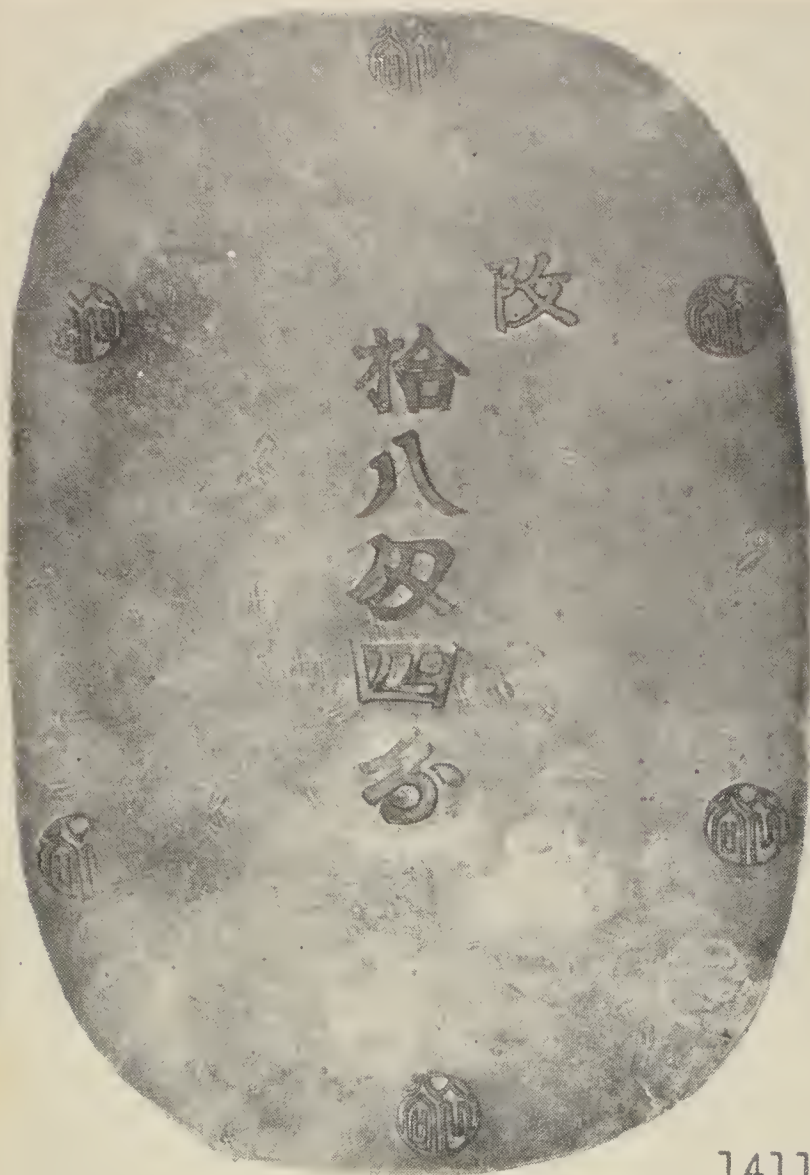 改
拾八匁四分
1411